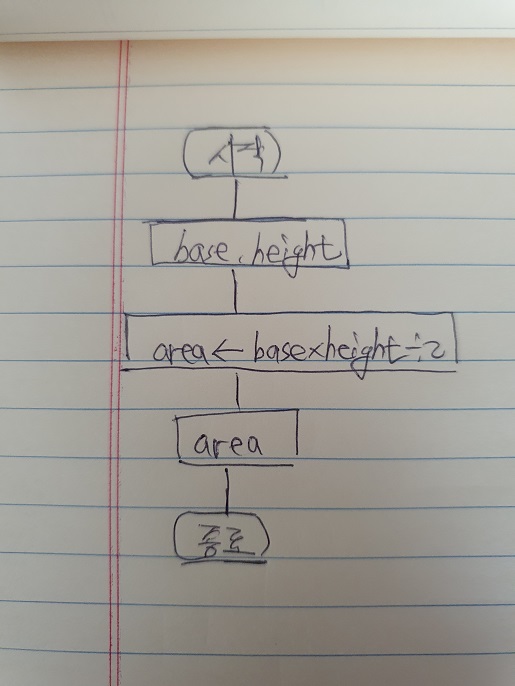 시작
base, height
area ← base×height÷2
area
종료